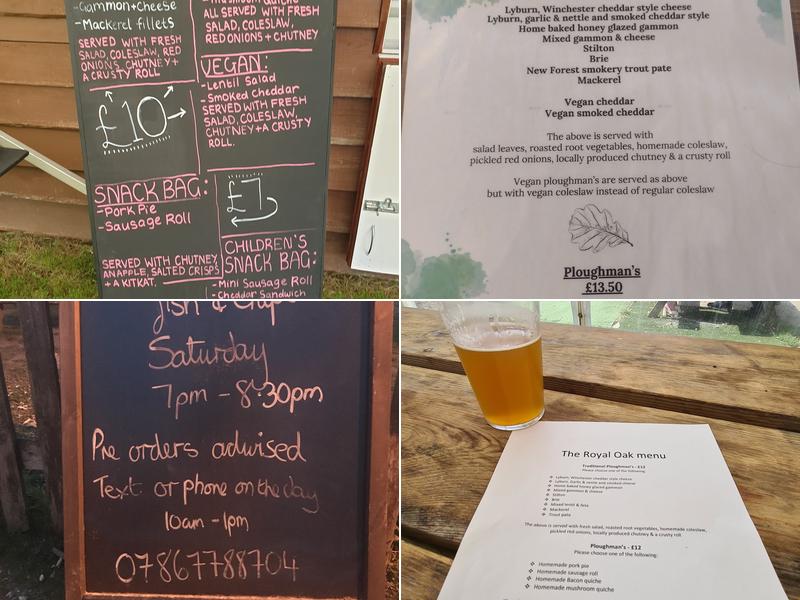 -Gammon+Cheese
-Mackerel fillets
SERVED WITH FRESH
SALAD, COLESLAW, RED
ONIONS, CHUTNEY +
A CRUSTY ROLL
£10
SNACK BAG:
-Pork Pie
-Sausage Roll
SERVED WITH CHUTNEY,
AN APPLE, SALTED CRISPS
+ A KITKAT.
ALL SERVED WITH FRESH
SALAD, COLESLAW,
RED ONIONS + CHUTNEY
VEGAN:
-Lentil Salad
-Smoked Cheddar
SERVED WITH FRESH
SALAD, COLESLAW,
CHUTNEY + A CRUSTY
ROLL.
£7
CHILDREN'S
SNACK BAG:
-Mini Sausage Roll
-Cheddar Sandwich
Lyburn, Winchester cheddar style cheese
Lyburn, garlic & nettle and smoked cheddar style
Home baked honey glazed gammon
Mixed gammon & cheese
Stilton
Brie
New Forest smokery trout pate
Mackerel
Vegan cheddar
Vegan smoked cheddar
The above is served with
salad leaves, roasted root vegetables, homemade coleslaw,
pickled red onions, locally produced chutney & a crusty roll
Vegan ploughman's are served as above
but with vegan coleslaw instead of regular coleslaw
Ploughman's
£13.50
fish & chips
Saturday
7pm - 8:30pm
Pre orders advised
Text or phone on the day
10am - 1pm
07867788704
The Royal Oak menu
Traditional Ploughman's - £12
Please choose one of the following:
Lyburn, Winchester cheddar style cheese
Lyburn, Garlic & nettle and smoked cheese
Home baked honey glazed gammon
Mixed gammon & cheese
Stilton
Brie
Mixed lentil & feta
Mackerel
Trout pate
The above is served with fresh salad, roasted root vegetables, homemade coleslaw,
pickled red onions, locally produced chutney & a crusty roll
Ploughman's - £12
Please choose one of the following:
Homemade pork pie
Homemade sausage roll
Homemade Bacon quiche
Homemade mushroom quiche